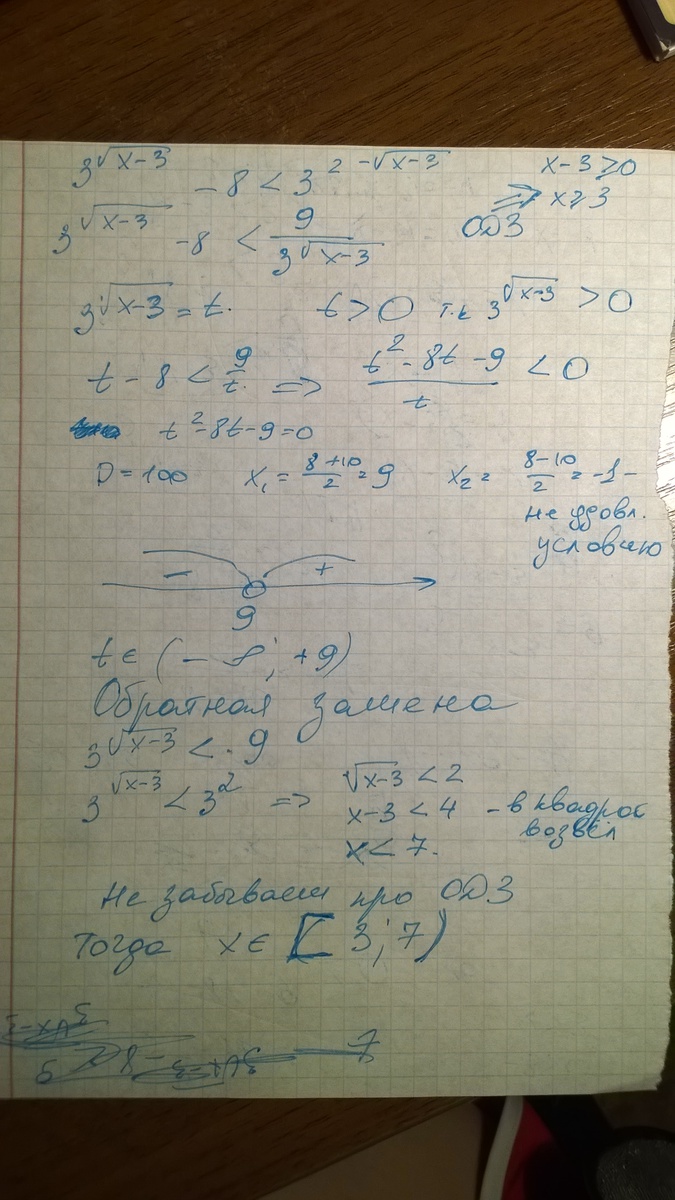 3^√(x-3) - 8 < 3^(2-√(x-3)) x-3 ≥ 0
⇒ x ≥ 3
3^√(x-3) - 8 < 9/3^√(x-3) ОДЗ
3^√(x-3) = t. t > 0 т.к 3^√(x-3) > 0
t - 8 < 9/t. ⇒ (t² - 8t - 9)/t < 0
t² - 8t - 9 = 0
D = 100 x₁ = (8+10)/2 = 9 x₂ = (8-10)/2 = -1 -
не удовл.
условию
- +
9
t ∈ (-∞; +9)
Обратная замена
3^√(x-3) < 9
3^√(x-3) < 3² ⇒ √(x-3) < 2
x-3 < 4 - в квадрат
возвёл
x < 7.
Не забываем про ОДЗ
Тогда x ∈ [3; 7)